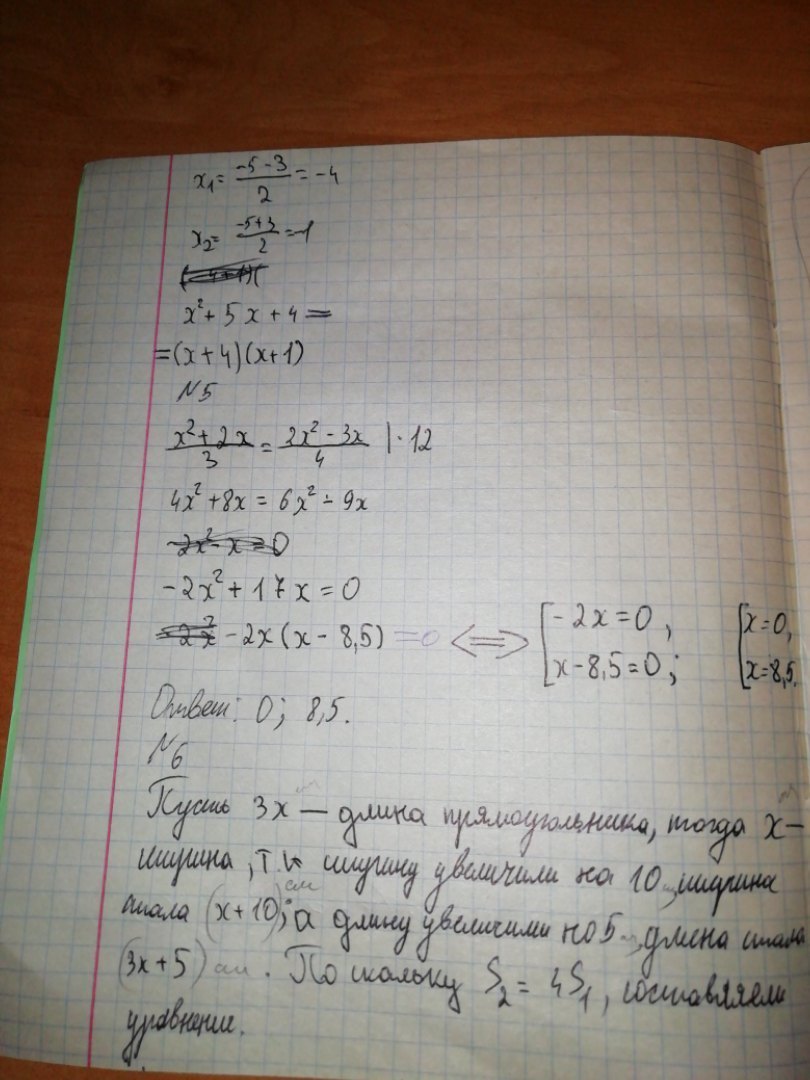 x₁ = (-5-3)/2 = -4
x₂ = (-5+3)/2 = -1
x² + 5x + 4 =
= (x+4)(x+1)
N5
(x²+2x)/3 = (2x²-3x)/4 | · 12
4x² + 8x = 6x² - 9x
-2x² - x = 0
-2x² + 17x = 0
-2x² -2x(x - 8,5) = 0 <=> [ -2x = 0, [ x=0,
x - 8,5 = 0; x=8,5.
Ответ: 0; 8,5.
N6
Пусть 3x см — длина прямоугольника, тогда x см —
ширина, т.к ширину увеличили на 10 см, ширина
стала (x+10) см, а длину увеличили на 5 см, длина стала
(3x+5) см. Поскольку S₂ = 4S₁, составляем
уравнение.